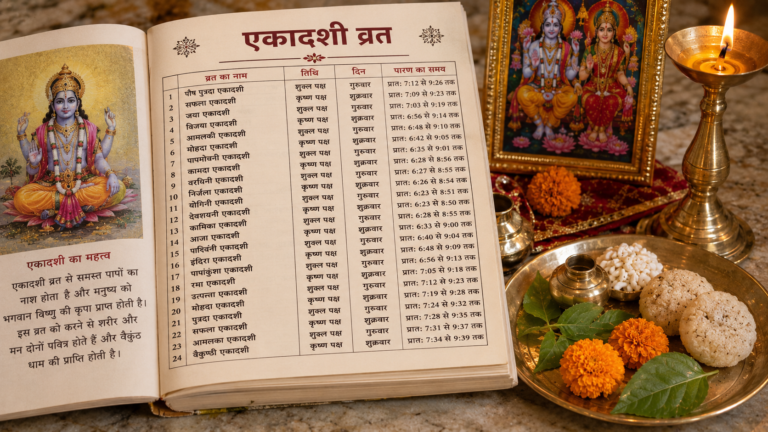 एकादशी का महत्व
एकादशी व्रत से समस्त पापों का
नाश होता है और मनुष्य को
भगवान विष्णु की कृपा प्राप्त होती है।
इस व्रत को करने से शरीर और
मन दोनों पवित्र होते हैं और वैकुंठ
धाम की प्राप्ति होती है।
एकादशी व्रत
व्रत का नाम तिथि दिन पारण का समय
1 पौष पुत्रदा एकादशी शुक्ल पक्ष गुरुवार प्रातः 7:12 से 9:26 तक
2 सफला एकादशी कृष्ण पक्ष शुक्रवार प्रातः 7:09 से 9:23 तक
3 जया एकादशी शुक्ल पक्ष गुरुवार प्रातः 7:03 से 9:19 तक
4 विजया एकादशी कृष्ण पक्ष शुक्रवार प्रातः 6:56 से 9:14 तक
5 आमलकी एकादशी शुक्ल पक्ष गुरुवार प्रातः 6:48 से 9:10 तक
6 मोहदा एकादशी कृष्ण पक्ष शुक्रवार प्रातः 6:42 से 9:05 तक
7 पापमोवनी एकादशी शुक्ल पक्ष गुरुवार प्रातः 6:25 से 9:01 तक
8 कामदा एकादशी कृष्ण पक्ष शुक्रवार प्रातः 6:28 से 8:56 तक
9 वरचिनी एकादशी शुक्ल पक्ष गुरुवार प्रातः 6:27 से 8:55 तक
10 निर्जला एकादशी कृष्ण पक्ष शुक्रवार प्रातः 6:26 से 8:54 तक
11 योगिनी एकादशी शुक्ल पक्ष गुरुवार प्रातः 6:23 से 8:51 तक
12 देवशयनी एकादशी कृष्ण पक्ष शुक्रवार प्रातः 6:23 से 8:50 तक
13 कामिका एकादशी शुक्ल पक्ष गुरुवार प्रातः 6:28 से 8:55 तक
14 आजा एकादशी कृष्ण पक्ष शुक्रवार प्रातः 6:33 से 9:00 तक
15 एकादशी शुक्ल पक्ष गुरुवार प्रातः 6:40 से 9:04 तक
16 इंदिरा एकादशी कृष्ण पक्ष शुक्रवार प्रातः 6:48 से 9:09 तक
17 पापांकुशा एकादशी शुक्ल पक्ष गुरुवार प्रातः 6:56 से 9:13 तक
18 रमा एकादशी कृष्ण पक्ष शुक्रवार प्रातः 7:05 से 9:18 तक
19 उत्पत्ना एकादशी शुक्ल पक्ष गुरुवार प्रातः 7:12 से 9:23 तक
20 मोहदा एकादशी कृष्ण पक्ष शुक्रवार प्रातः 7:19 से 9:28 तक
21 पुत्रदा एकादशी शुक्ल पक्ष गुरुवार प्रातः 7:24 से 9:32 तक
22 सफला एकादशी कृष्ण पक्ष शुक्रवार प्रातः 7:28 से 9:35 तक
23 आमलका एकादशी शुक्ल पक्ष गुरुवार प्रातः 7:31 से 9:37 तक
24 वैकुण्ठी एकादशी कृष्ण पक्ष शुक्रवार प्रातः 7:34 से 9:39 तक